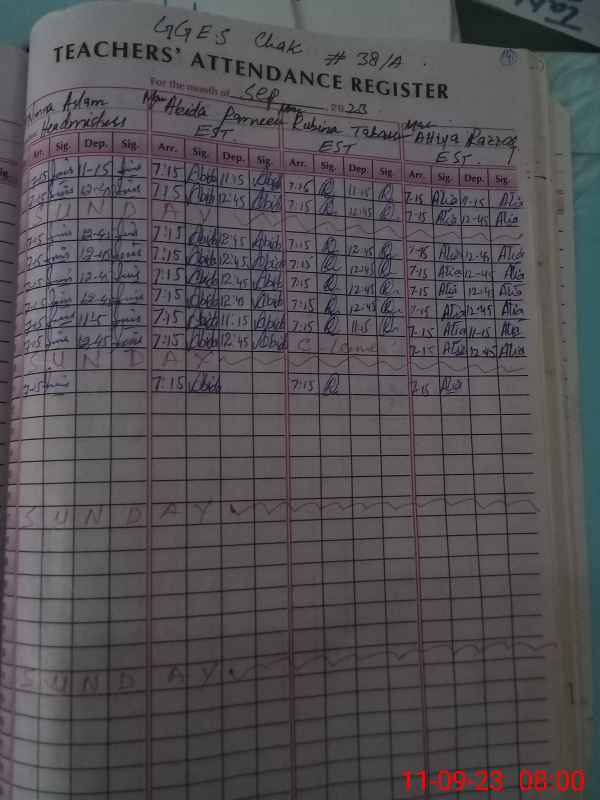 GGES Chak # 38/A.
TEACHERS' ATTENDANCE REGISTER
For the month of Sep 2023
Aslam Abida Parveen Rubina Attiya Razzaq
Headmistress EST EST EST.
Arr. Sig. Dep. Sig. Arr. Sig. Dep. Sig. Arr. Sig. Dep. Sig. Arr. Sig. Dep. Sig.
7-15 11-15 7:15 Abida 11:15 Abida 7:15 11:15 7:15 Atia 11-15 Atia
7-15 12-45 7:15 Abida 12:45 Abida 7:15 12:45 7-15 Atia 12-45 Atia
S U N D A Y
7-15 12-45 7:15 Abida 12:45 Abida 7:15 12:45 7-15 Atia 12-45 Atia
7-15 12-45 7:15 Abida 12:45 Abida 7:15 12:45 7-15 Atia 12-45 Atia
7-15 12-45 7:15 Abida 12:45 Abida 7:15 12:45 7:15 Atia 12:45 Atia
7-15 12-45 7:15 Abida 12:45 Abida 7:15 12:45 7:15 Atia 12:45 Atia
7-15 11-15 7:15 Abida 11:15 Abida 7:15 11:15 7-15 Atia 11-15 Atia
7-15 12-45 7:15 Abida 12:45 Abida C. leave 7-15 Atia 12-45 Atia
S U N D A Y
7-15 7:15 Abida 7:15 7:15 Atia
S U N D A Y
S U N D A Y
11-09-23 08:00